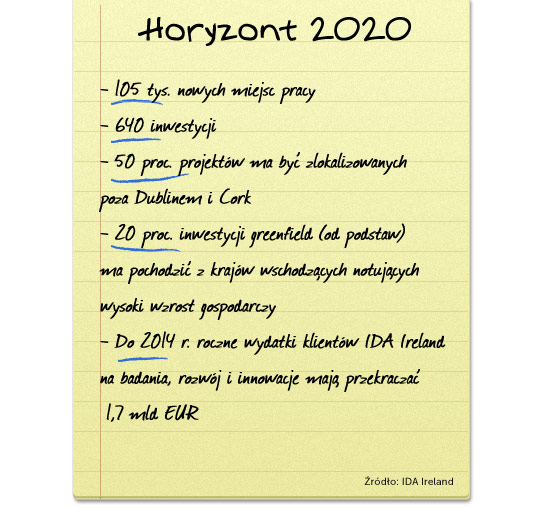 Horyzont 2020
- 105 tys. nowych miejsc pracy
- 640 inwestycji
- 50 proc. projektów ma być zlokalizowanych
poza Dublinem i Cork
- 20 proc. inwestycji greenfield (od podstaw)
ma pochodzić z krajów wschodzących notujących
wysoki wzrost gospodarczy
- Do 2014 r. roczne wydatki klientów IDA Ireland
na badania, rozwój i innowacje mają przekraczać
1,7 mld EUR
Źródło: IDA Ireland